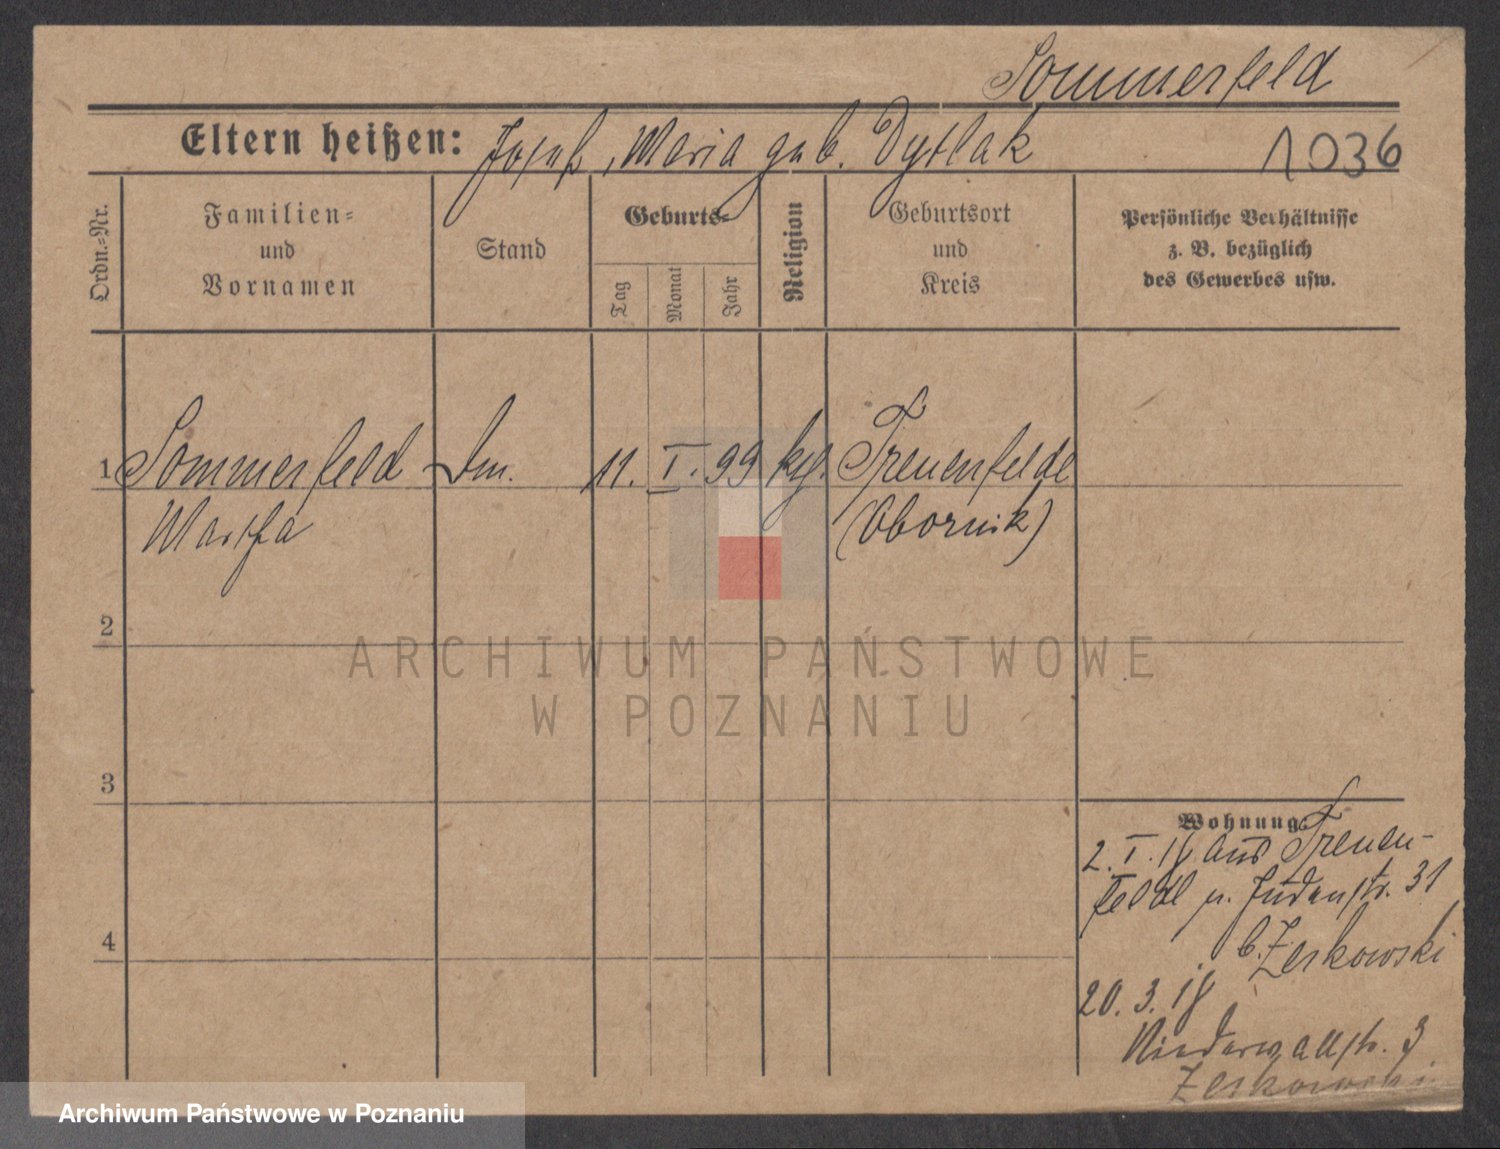 Sommerfeld
Eltern heißen: Josef, Maria geb. Dytlak
1036
Ordn.=Nr.
Familien=
und
Vornamen
Stand
Geburts=
Tag
Monat
Jahr
Religion
Geburtsort
und
Kreis
Persönliche Verhältnisse
z. B. bezüglich
des Gewerbes usw.
1 Sommerfeld 11. I. 99 Treuenfelde
Martha (Obornik)
2
3
4
Wohnung
2. I. 18 aus Treuen-
felde n. Judenstr. 31
b. Zerkowski
20. 3. 18
Niederwallstr. 3
Zerkowski
ARCHIWUM PAŃSTWOWE
W POZNANIU
Archiwum Państwowe w Poznaniu